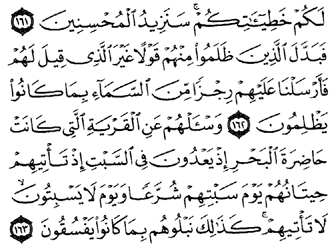 لَكُمْ خَطِيٓـَٰٔتِكُمْ ۚ سَنَزِيدُ ٱلْمُحْسِنِينَ ۝١٦١
فَبَدَّلَ ٱلَّذِينَ ظَلَمُوا۟ مِنْهُمْ قَوْلًا غَيْرَ ٱلَّذِى قِيلَ لَهُمْ
فَأَرْسَلْنَا عَلَيْهِمْ رِجْزًا مِّنَ ٱلسَّمَآءِ بِمَا كَانُوا۟
يَظْلِمُونَ ۝١٦٢ وَسْـَٔلْهُمْ عَنِ ٱلْقَرْيَةِ ٱلَّتِى كَانَتْ
حَاضِرَةَ ٱلْبَحْرِ إِذْ يَعْدُونَ فِى ٱلسَّبْتِ إِذْ تَأْتِيهِمْ
حِيتَانُهُمْ يَوْمَ سَبْتِهِمْ شُرَّعًا وَيَوْمَ لَا يَسْبِتُونَ ۙ
لَا تَأْتِيهِمْ ۚ كَذَٰلِكَ نَبْلُوهُم بِمَا كَانُوا۟ يَفْسُقُونَ ۝١٦٣